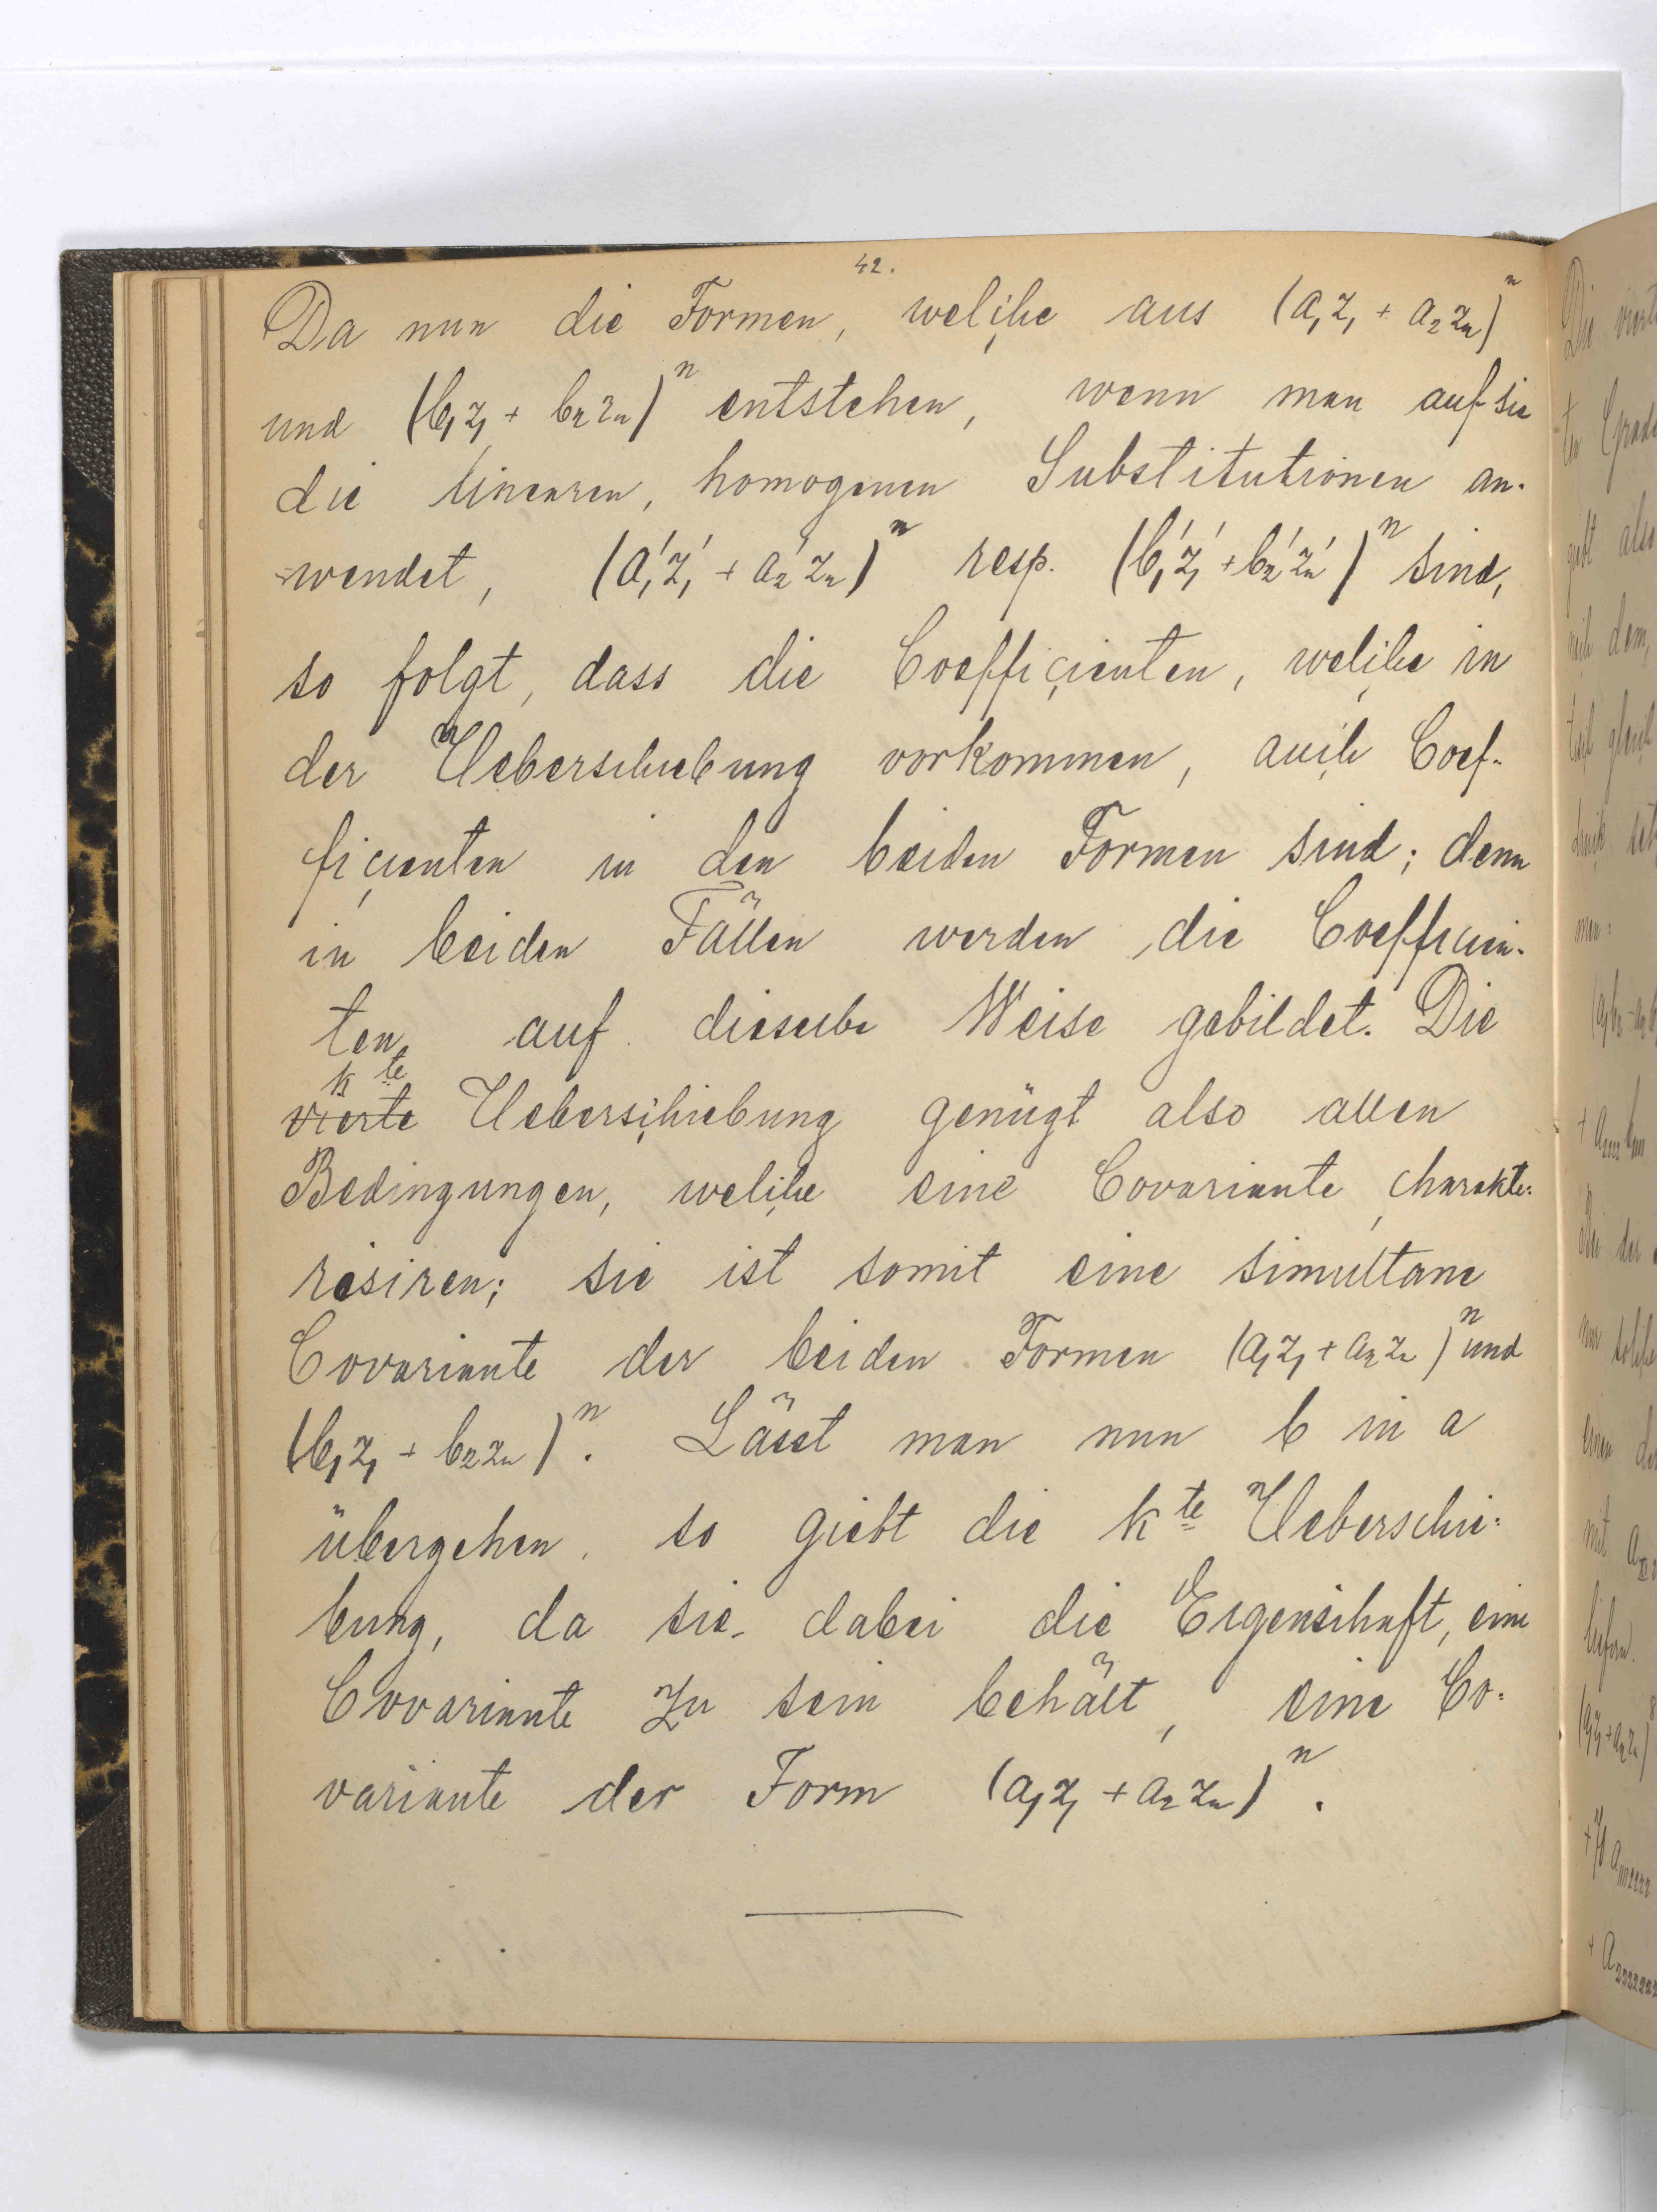 42.
Da nun die Formen, welche aus (a₁z₁ + a₂z₂)ⁿ
und (b₁z₁ + b₂z₂)ⁿ entstehen, wenn man auf sie
die linearen, homogenen Substitutionen an-
wendet, (a₁'z₁' + a₂'z₂)ⁿ resp. (b₁'z₁' + b₂'z₂')ⁿ sind,
so folgt, dass die Coefficienten, welche in
der Ueberschiebung vorkommen, auch Coef-
ficienten in den beiden Formen sind; denn
in beiden Fällen werden die Coefficien-
ten auf dieselbe Weise gebildet. Die
k te
vierte Ueberschiebung genügt also allen
Bedingungen, welche eine Covariante charakte-
risiren; sie ist somit eine simultane
Covariante der beiden Formen (a₁z₁ + a₂z₂)ⁿ und
(b₁z₁ + b₂z₂)ⁿ. Lässt man nun b in a
übergehen, so giebt die k te Ueberschie-
bung, da sie dabei die Eigenschaft, eine
Covariante zu sein behält, eine Co-
variante der Form (a₁z₁ + a₂z₂)ⁿ.